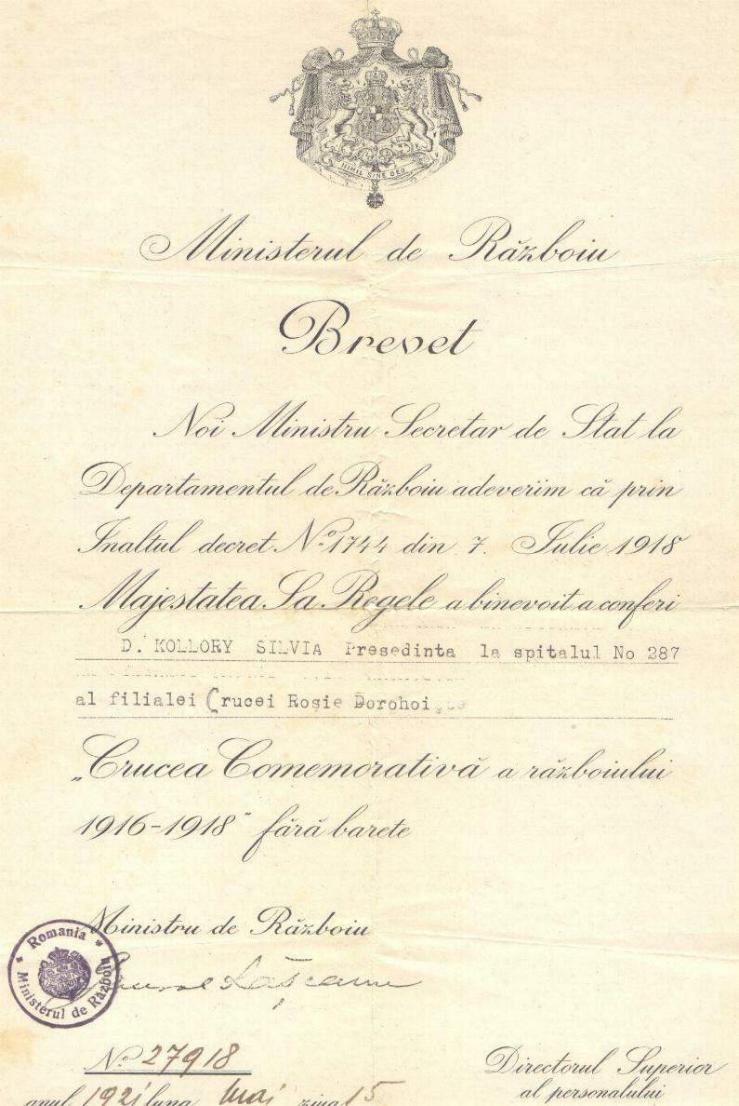 NIHIL SINE DEO
Ministerul de Războiu
Brevet
Noi Ministru Secretar de Stat la
Departamentul de Războiu adeverim că prin
Inaltul decret No. 1744 din 7. Iulie 1918
Majestatea Sa Regele a binevoit a conferi
D. KOLLORY SILVIA Presedinta la spitalul No 287
al filialei Crucei Rosie Dorohoi
„Crucea Comemorativă a războiului
1916-1918" fără barete
Ministru de Războiu
Romania
Ministerul de Războiu
No 27918
anul 1921 luna Mai ziua 15
Directorul Superior
al personalului